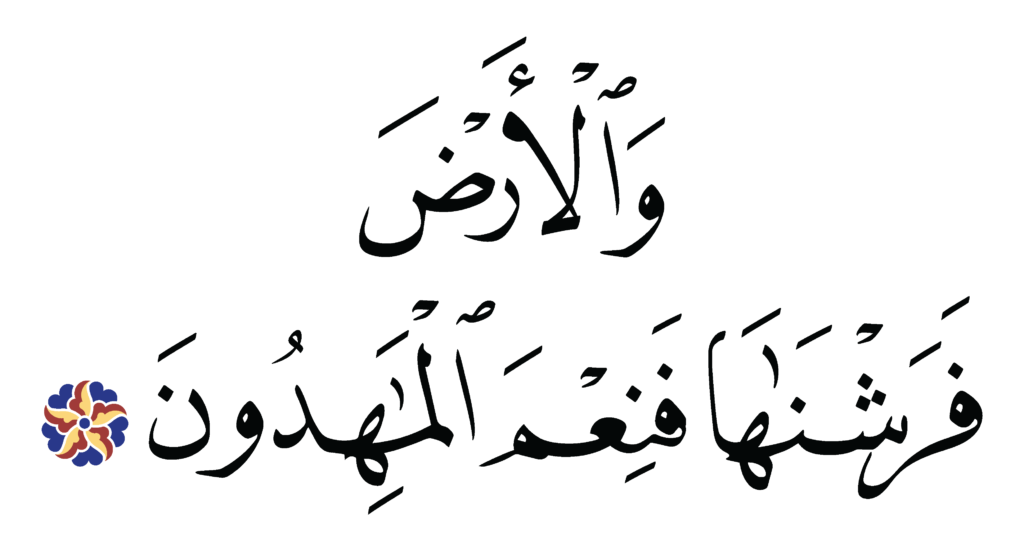 وَٱلْأَرْضَ
فَرَشْنَٰهَا فَنِعْمَ ٱلْمَٰهِدُونَ